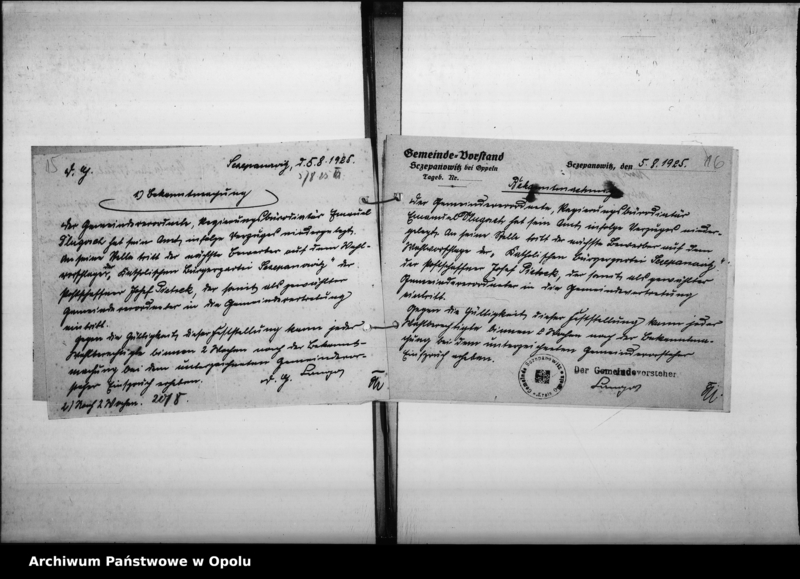 15
d. G.
Sczepanowitz, d. 5.8.1925.
1) Bekanntmachung
Der Gemeindeverordnete, Regierungsbürodiätar Emanuel
hat sein Amt infolge Verzuges niedergelegt.
An seine Stelle tritt der nächste Bewerber auf dem Wahl-
vorschlage der „Katholischen Bürgerpartei Sczepanowitz" der
Postschaffner Josef Piatek, der somit als gewählter
Gemeindeverordneter in die Gemeindevertretung
eintritt.
Gegen die Gültigkeit dieser Feststellung kann jeder
Wahlberechtigte binnen 2 Wochen nach der Bekannt-
machung bei dem unterzeichneten Gemeindevor-
steher Einspruch erheben.
d. G.
2) Nach 2 Wochen. 20/8.
Gemeinde-Vorstand
Sczepanowitz bei Oppeln
Tageb. Nr.
Sczepanowitz, den 5.8.1925.
16
Bekanntmachung
Der Gemeindeverordnete, Regierungsbürodiätar
Emanuel hat sein Amt infolge Verzuges nieder-
gelegt. An seine Stelle tritt der nächste Bewerber auf dem
Wahlvorschlage der „Katholischen Bürgerpartei Sczepanowitz"
der Postschaffner Josef Piatek, der somit als gewählter
Gemeindeverordneter in die Gemeindevertretung
eintritt.
Gegen die Gültigkeit dieser Feststellung kann jeder
Wahlberechtigte binnen 2 Wochen nach der Bekanntma-
chung bei dem unterzeichneten Gemeindevorsteher
Einspruch erheben.
Der Gemeindevorsteher.
Archiwum Państwowe w Opolu